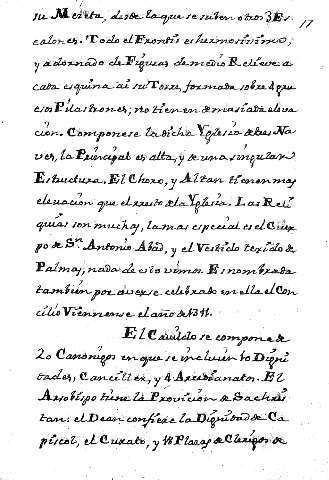 su Meseta, desde la que se suben otros 3 Es- 17
calones. Todo el Frontis es hermosissimo,
y adornado de Figuras de medio Relieve a
cada esquina ai su Torre, formada sobre 4 grue
sos Pilastrones; no tienen demasiada eleva
ción. Componese la dicha Yglesia de tres Na
ves, la Principal es alta, y de una singular
Estructura. El Choro, y Altar tienen mas
elevacion que el resto de la Yglesia. Las Reli
quias son muchas, la mas especial es el Cuer
po de Sn. Antonio Abad, y el Vestido texido de
Palmas, nada de esto vimos. Es nombrada
tambien por averse celebrado en ella el Con
cilio Viennense el año de 1311.
El Cavildo se compone de
20 Canonigos en que se incluien 10 Digni
dades, Canciller, y 4 Arcedianatos. El
Arzobispo tiene la Provicion de Sachris
tan: el Dean confiere la Dignidad de Ca
piscol, el Curato, y 18 Plazas de Clerigos de